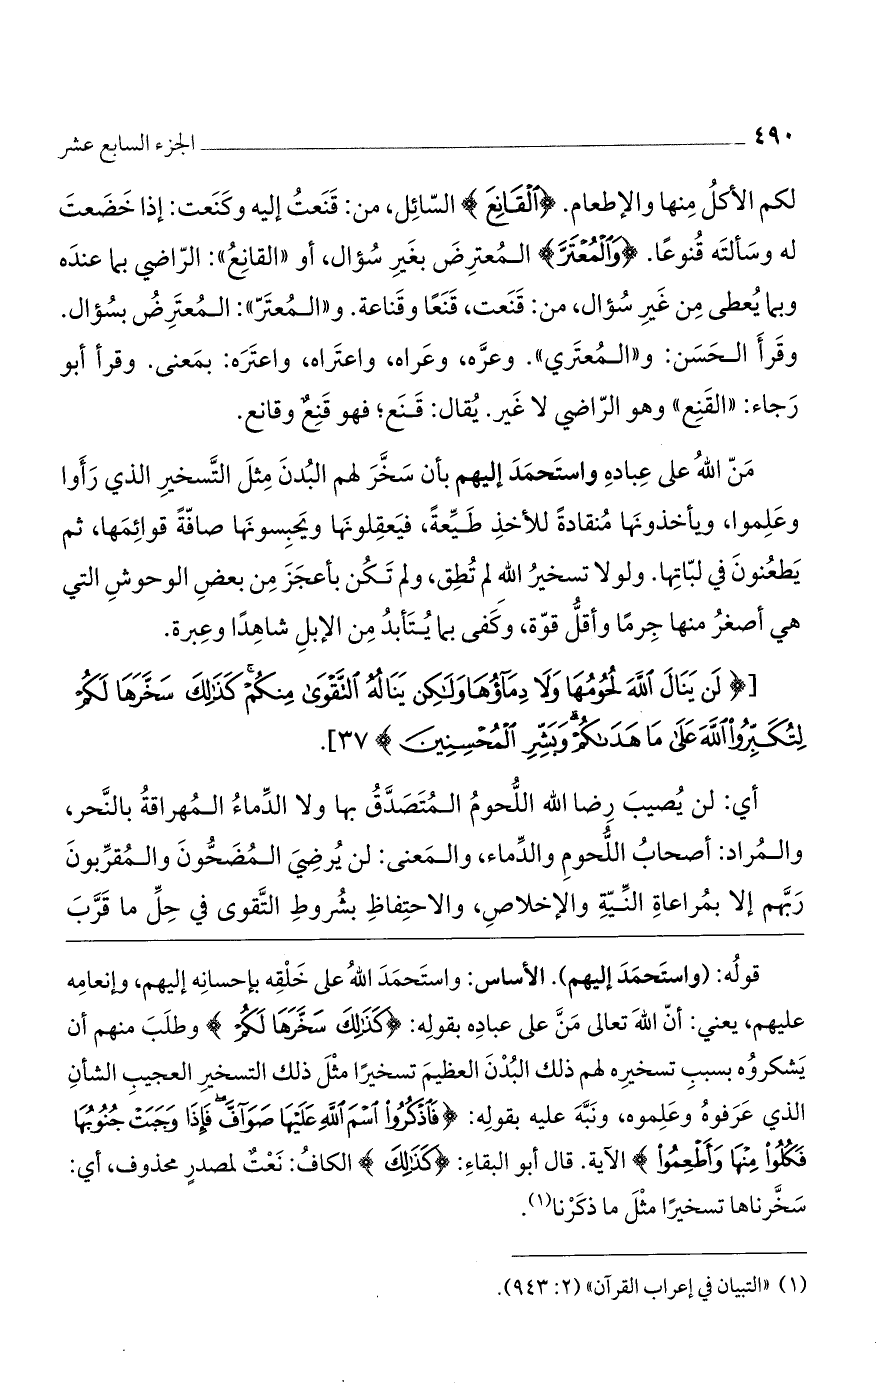 ٤٩٠ ــــــــــــ الجزء السابع عشر
لكم الأكلُ مِنها والإطعام. ﴿ٱلْقَانِعَ﴾ السّائِل، من: قَنَعتُ إليه وكَنَعت: إذا خَضَعتَ
له وسَألتَه قُنوعًا. ﴿وَٱلْمُعْتَرَّ﴾ الـمُعترِضَ بغَيرِ سُؤال، أو «القانِعُ»: الرّاضي بما عندَه
وبما يُعطى مِن غَيرِ سُؤال، من: قَنَعت، قَنَعًا وقَناعة. و«الـمُعتَرّ»: الـمُعتَرِضُ بسُؤال.
وقَرأَ الـحَسَن: و«الـمُعتَري». وعرَّه، وعَراه، واعتَراه، واعتَرَه: بمَعنى. وقرأ أبو
رَجاء: «القَنِع» وهو الرّاضي لا غَير. يُقال: قَـنَع؛ فهو قَنِعٌ وقانع.
مَنّ اللهُ على عِبادهِ واستَحمَدَ إليهم بأن سَخَّرَ لهم البُدنَ مِثلَ التَّسخيرِ الذي رَأَوا
وعَلِموا، ويأخذونَها مُنقادةً للأخذِ طَـيِّعةً، فيَعقِلونَها ويَحبِسونَها صافّةً قوائِمَها، ثم
يَطعُنونَ في لبّاتِها. ولولا تسخيرُ اللهِ لم تُطِق، ولم تَـكُن بأعجَزَ مِن بعضِ الوحوشِ التي
هي أصغرُ منها جِرمًا وأقلُّ قوّة، وكَفى بما يُـتَأبدُ مِن الإبلِ شاهِدًا وعِبرة.
[﴿لَن يَنَالَ ٱللَّهَ لُحُومُهَا وَلَا دِمَآؤُهَا وَلَٰكِن يَنَالُهُ ٱلتَّقْوَىٰ مِنكُمْ ۚ كَذَٰلِكَ سَخَّرَهَا لَكُمْ
لِتُكَبِّرُوا۟ ٱللَّهَ عَلَىٰ مَا هَدَىٰكُمْ ۗ وَبَشِّرِ ٱلْمُحْسِنِينَ﴾ ٣٧].
أي: لن يُصيبَ رِضا الله اللُّحومُ الـمُتَصَدَّقُ بها ولا الدِّماءُ الـمُهراقةُ بالنَّحر،
والـمُراد: أصحابُ اللُّحومِ والدِّماء، والـمَعنى: لن يُرضِيَ الـمُضَحُّونَ والـمُقرِّبونَ
رَبَّهم إلا بمُراعاةِ النِّـيّةِ والإخلاصِ، والاحتِفاظِ بشُروطِ التَّقوى في حِلِّ ما قَرَّبَ
قولُه: (واستَحمَدَ إليهم). الأساس: واستَحمَدَ اللهُ على خَلْقِه بإحسانِه إليهم، وإنعامِه
عليهم، يعني: أنّ اللهَ تعالى مَنَّ على عبادِه بقولِه: ﴿كَذَٰلِكَ سَخَّرَهَا لَكُمْ﴾ وطلَبَ منهم أن
يَشكروُه بسببِ تسخيرِه لهم ذلك البُدْنَ العظيمَ تسخيرًا مثْلَ ذلك التسخيرِ العجيبِ الشأنِ
الذي عَرَفوهُ وعَلِموه، ونَبَّهَ عليه بقولِه: ﴿فَٱذْكُرُوا۟ ٱسْمَ ٱللَّهِ عَلَيْهَا صَوَآفَّ ۖ فَإِذَا وَجَبَتْ جُنُوبُهَا
فَكُلُوا۟ مِنْهَا وَأَطْعِمُوا۟﴾ الآية. قال أبو البقاءِ: ﴿كَذَٰلِكَ﴾ الكافُ: نَعْتٌ لمصدرٍ محذوف، أي:
سَخَّرناها تسخيرًا مثْلَ ما ذكَرْنا(١).
(١) «التبيان في إعراب القرآن» (٢: ٩٤٣).